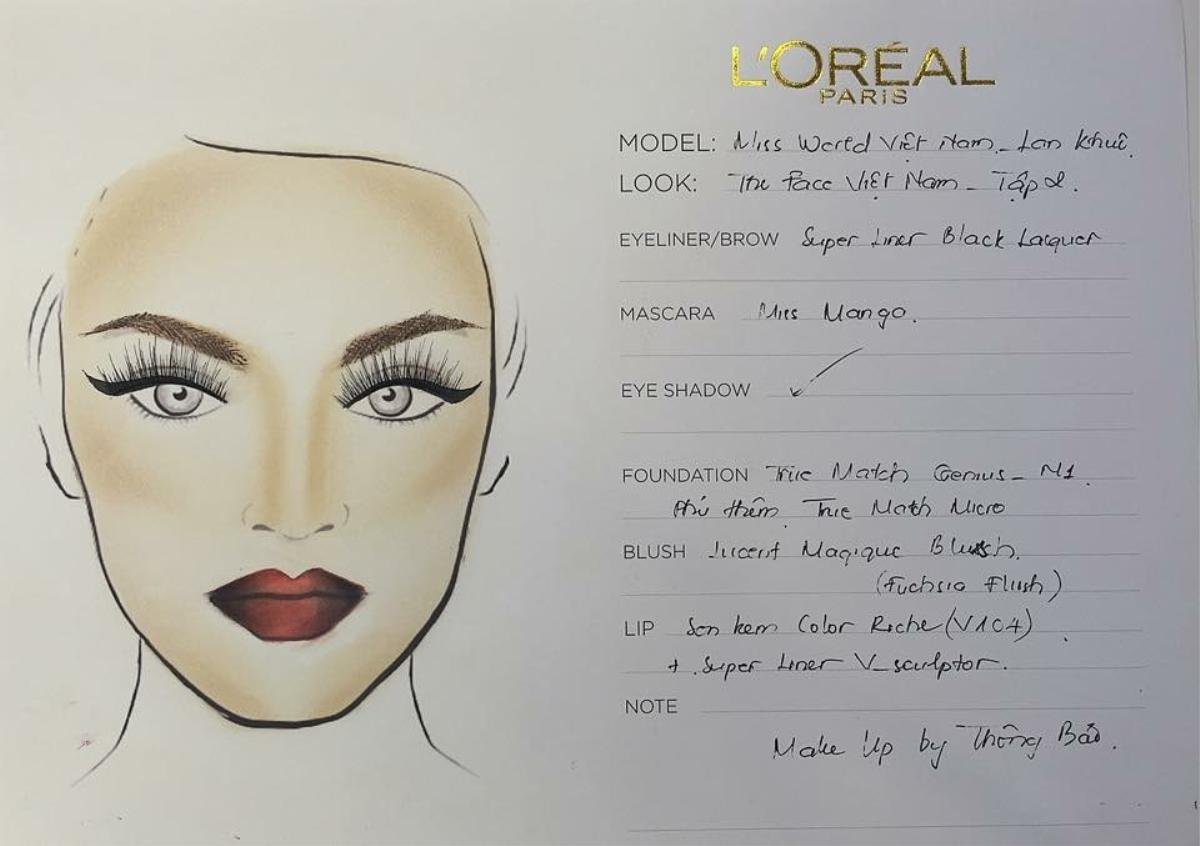 L'ORÉAL
PARIS
MODEL: Miss World Việt Nam - Lan Khuê.
LOOK: The Face Việt Nam - Tập 2.
EYELINER/BROW Super Liner Black Lacquer
MASCARA Miss Manga.
EYE SHADOW
FOUNDATION True Match Genius - N1.
Phủ thêm True Math Micro
BLUSH Lucent Magique Blush.
(Fuchsia Flush)
LIP Son kem Color Riche (V104)
+ Super Liner V_sculptor.
NOTE
Make Up by Thông Bảo.